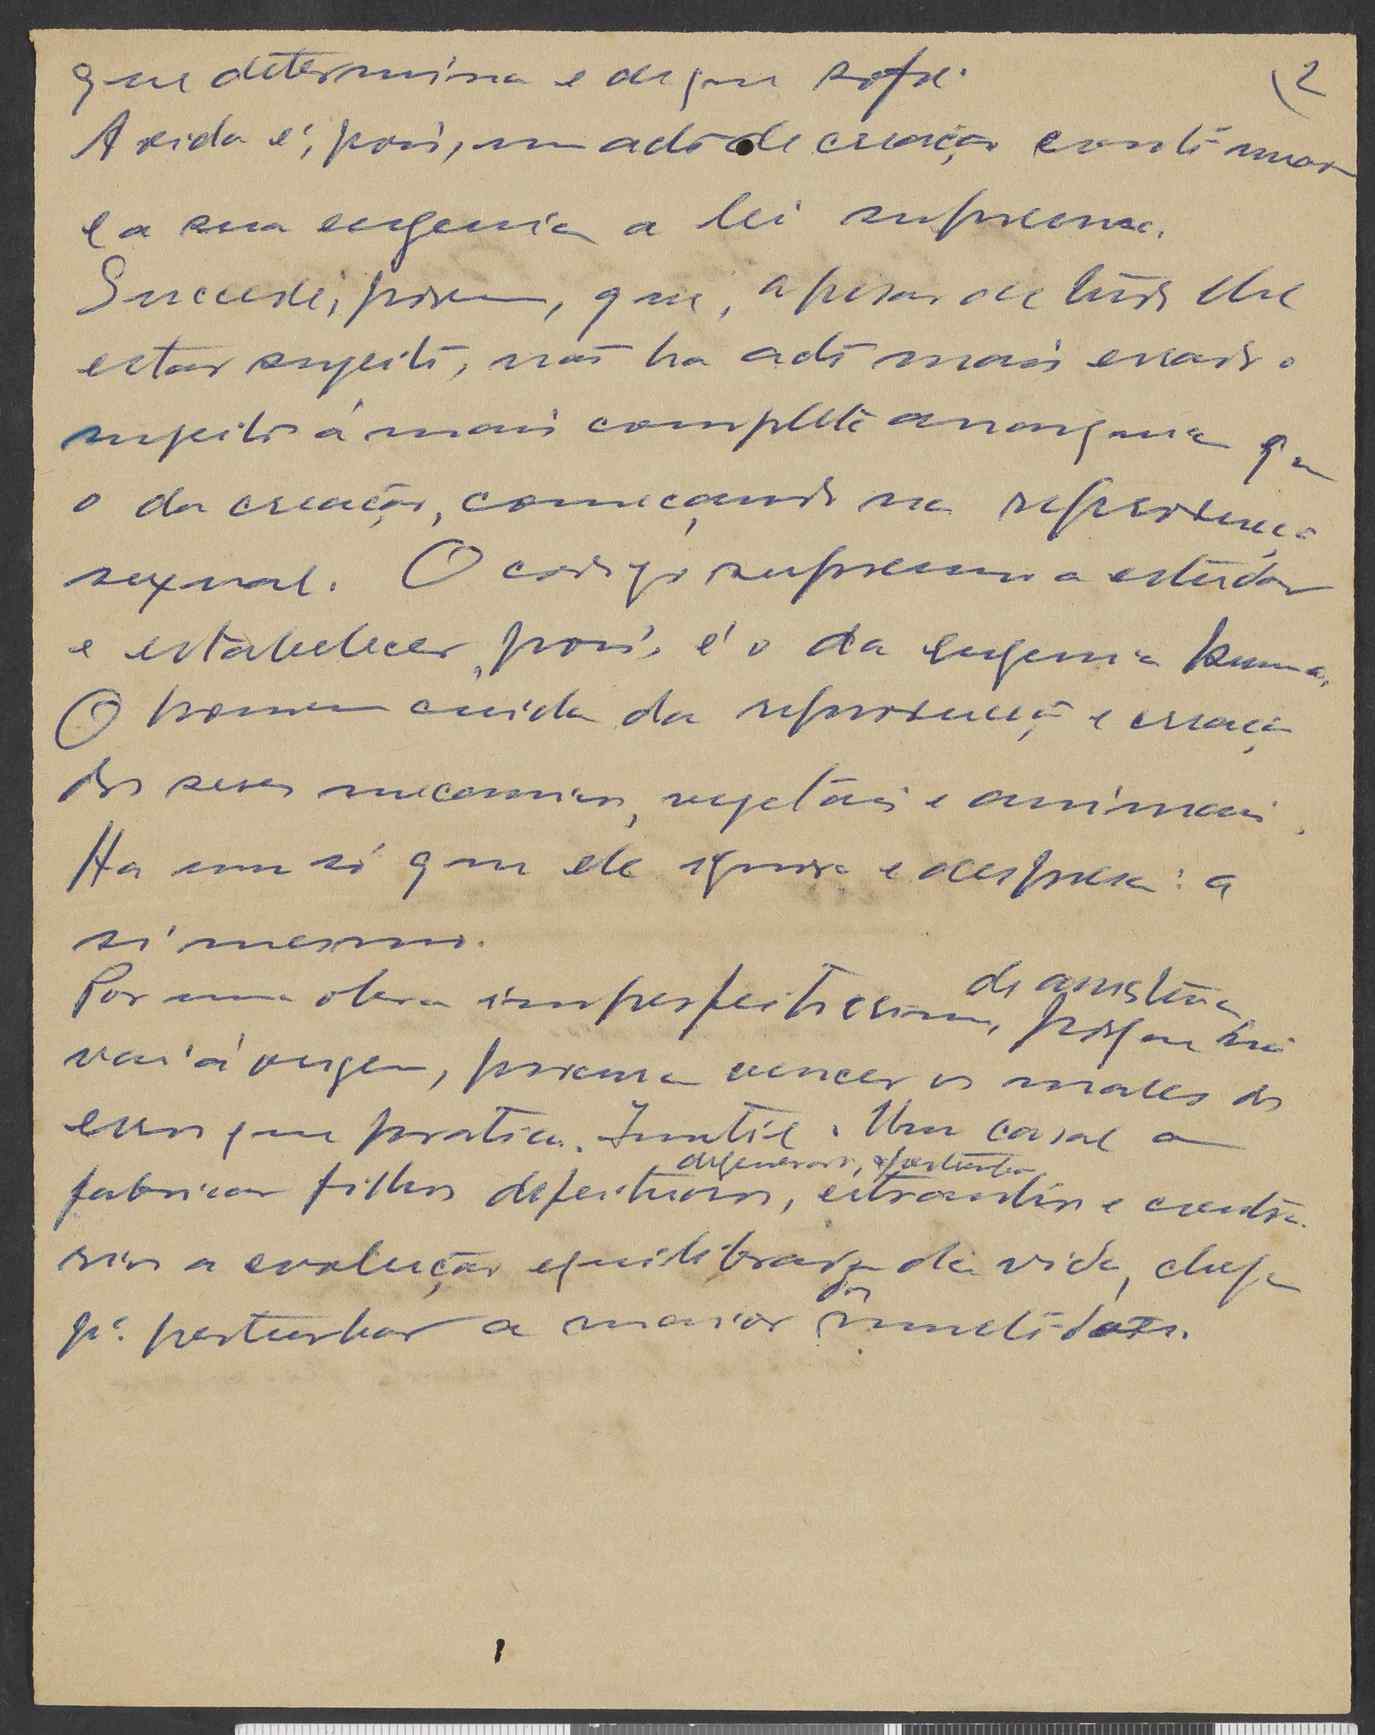 2
que determina e de que sofre.
A vida é, pois, um acto de creação continua
e a sua eugenia a lei suprema.
Succede, porem, que, apesar de tudo lhe
estar sugeito, não ha acto mais errado e
sugeito á mais completa anarquia que
o da creação, começando na reprodução
sexual. O codigo supremo a estudar
e estabelecer, pois, é o da eugenia humana.
O homem cuida da reprodução e creação
dos seres mecanicos, vegetais e animais.
Ha um só que ele ignora e despresa: a
si mesmo.
Por uma obra imperfeitissima, de assistencia porque não
vai á origem, procura vencer os males dos
erros que pratica. Inutil. Um casal a
degenerados, perturba
fabricar filhos defeituosos, e contra
rios a evolução equilibrada da vida, chega
pª. perturbar a maior das